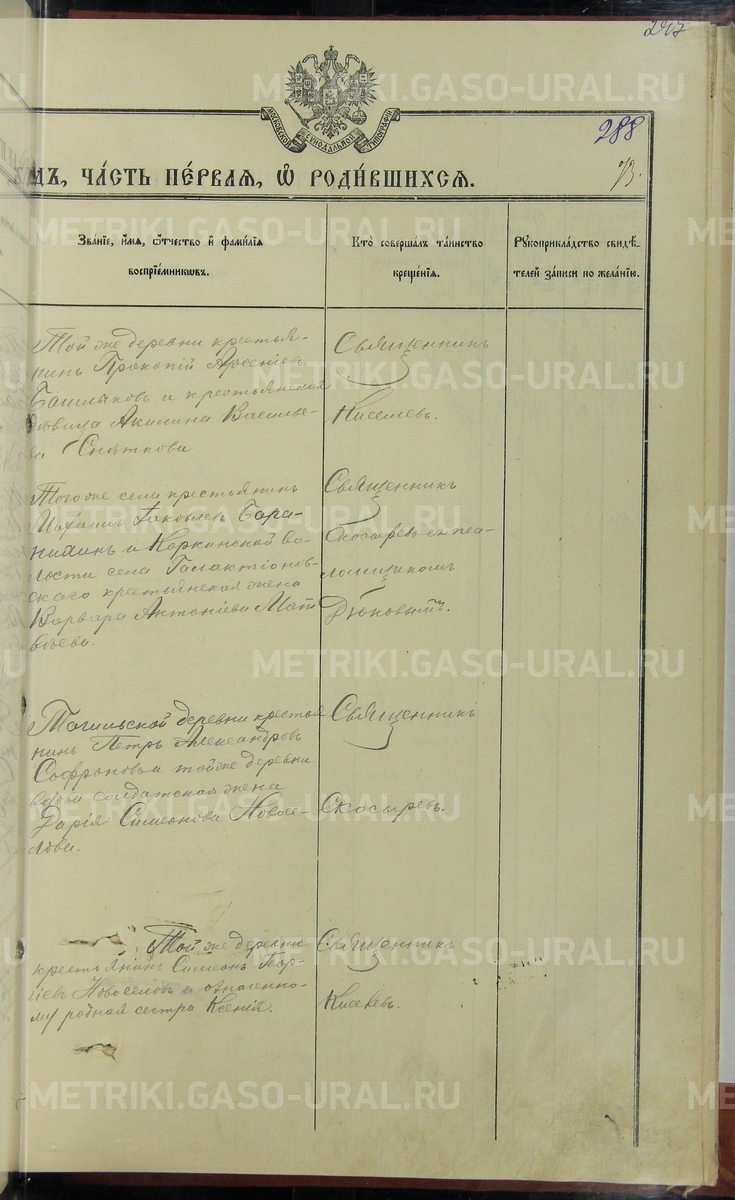 247
МОСКОВСКОЙ СѴНОДАЛЬНОЙ ТИПОГРАФІИ
288
73.
ДЪ, ЧА́СТЬ ПЕ́РВАЯ, Ѡ҆ РОДИ́ВШИХСЯ.
Зва́ніе, и҆́мя, ѻ҆́тчество и҆ фами́лія
воспріе́мникѡвъ.
Кто̀ соверша́лъ та́инство
креще́нія.
Рꙋкоприкла́дство свидѣ́-
телей за́писи по жела́нію.
Той же деревни крестья-
нинъ Прокопій Арсеніевъ
Башлыковъ и крестьянская
дѣвица Акилина Василье-
ва Снѣткова
Священникъ
Киселевъ.
Того же села крестьянинъ
Яковлевъ Бара-
и Корканской во-
лости села Галактіонов-
скаго крестьянская жена
Варвара Антоніева Мат-
вѣева.
Священникъ
Скосыревъ съ пса-
ломщикомъ
Дюковымъ.
Тагильской деревни крестья
нинъ Петръ Александровъ
Софроновъ и той же деревни
вдова солдатская жена
Дарія Симеонова Новосе-
лова.
Священникъ
Скосыревъ.
Той же деревни
крестьянинъ Симеонъ Геор-
гіевъ Новоселовъ и означенно-
му родная сестра Ксенія.
Священникъ
Киселевъ.
METRIKI.GASO-URAL.RU